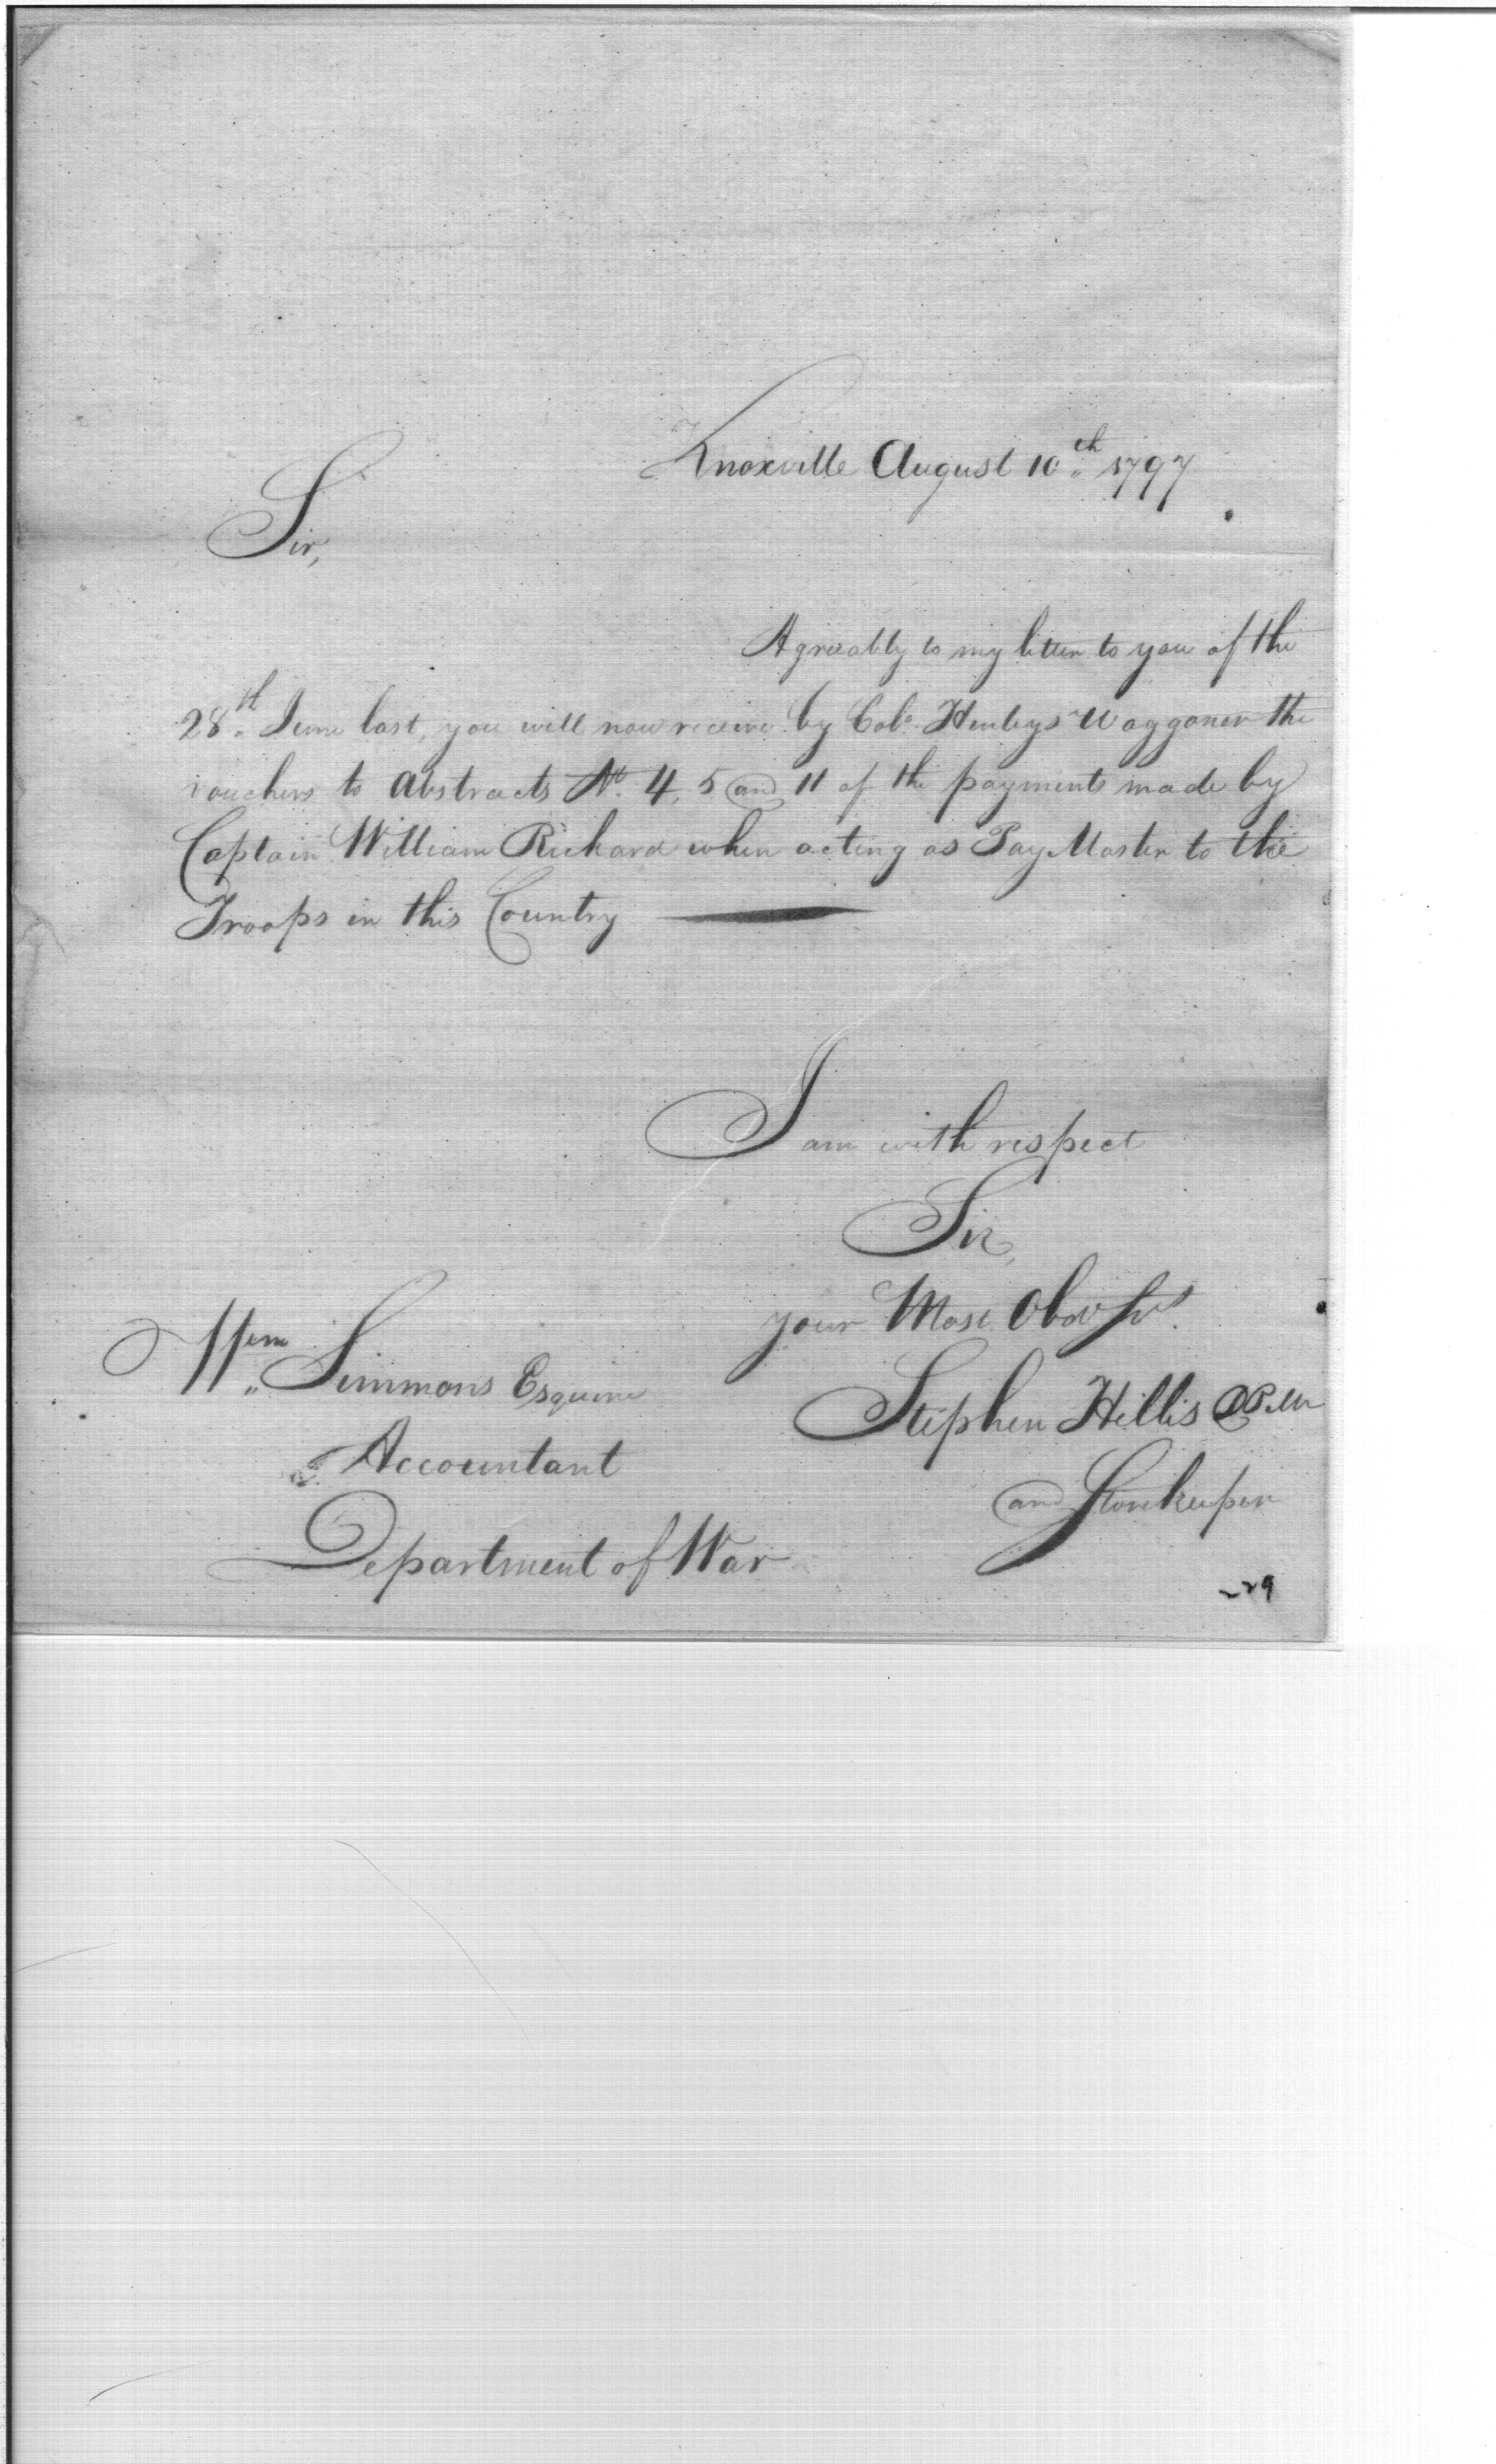 Knoxville August 10th 1797
Sir,
Agreeably to my letter to you of the
28th June last, you will now receive by Colo. Henleys Waggoner the
vouchers to Abstracts No. 4, 5 and 11 of the payments made by
Captain William Rickard when acting as Pay Master to the
Troops in this Country
I am with respect
Sir,
your Most Obdt Svt.
Wm Simmons Esquire
Stephen Hillis DPM
Accountant
and Storekeeper
Department of War